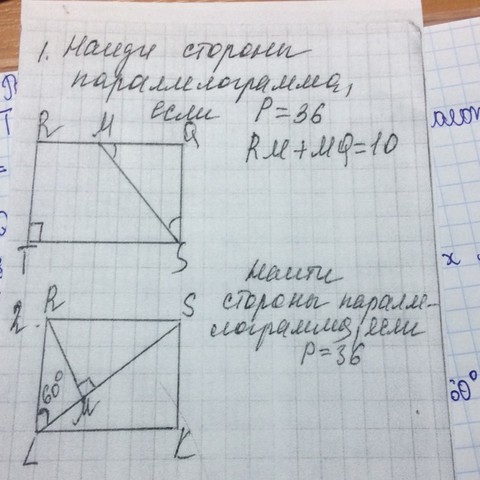 1. Найди стороны
параллелограмма,
если P=36
RM+MQ=10
R M Q
T S
Найти
стороны паралле-
лограмма, если
P=36
2. R S
60°
M
L K
x
60°